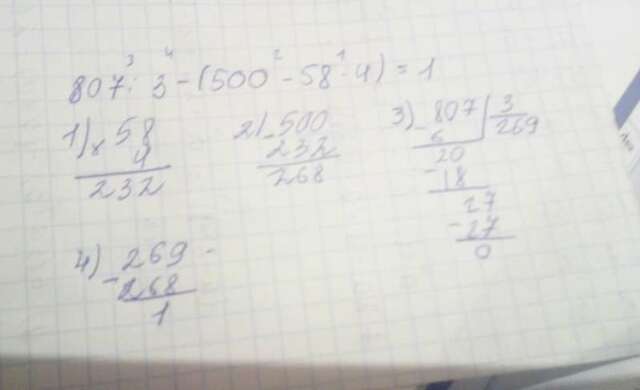 3 4 2 1
807 : 3 - (500 - 58 · 4) = 1
1) × 58
4
232
2) - 500
232
268
3) - 807 | 3
6 269
20
- 18
27
- 27
0
4) - 269
268
1